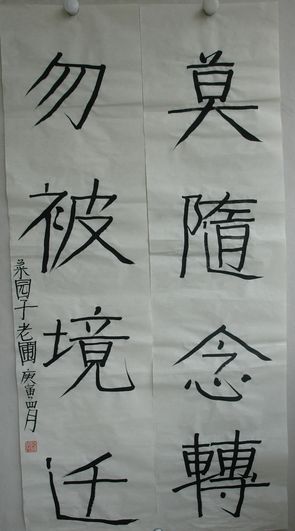 莫隨念轉
勿被境迁
菜园子老圃庚寅四月